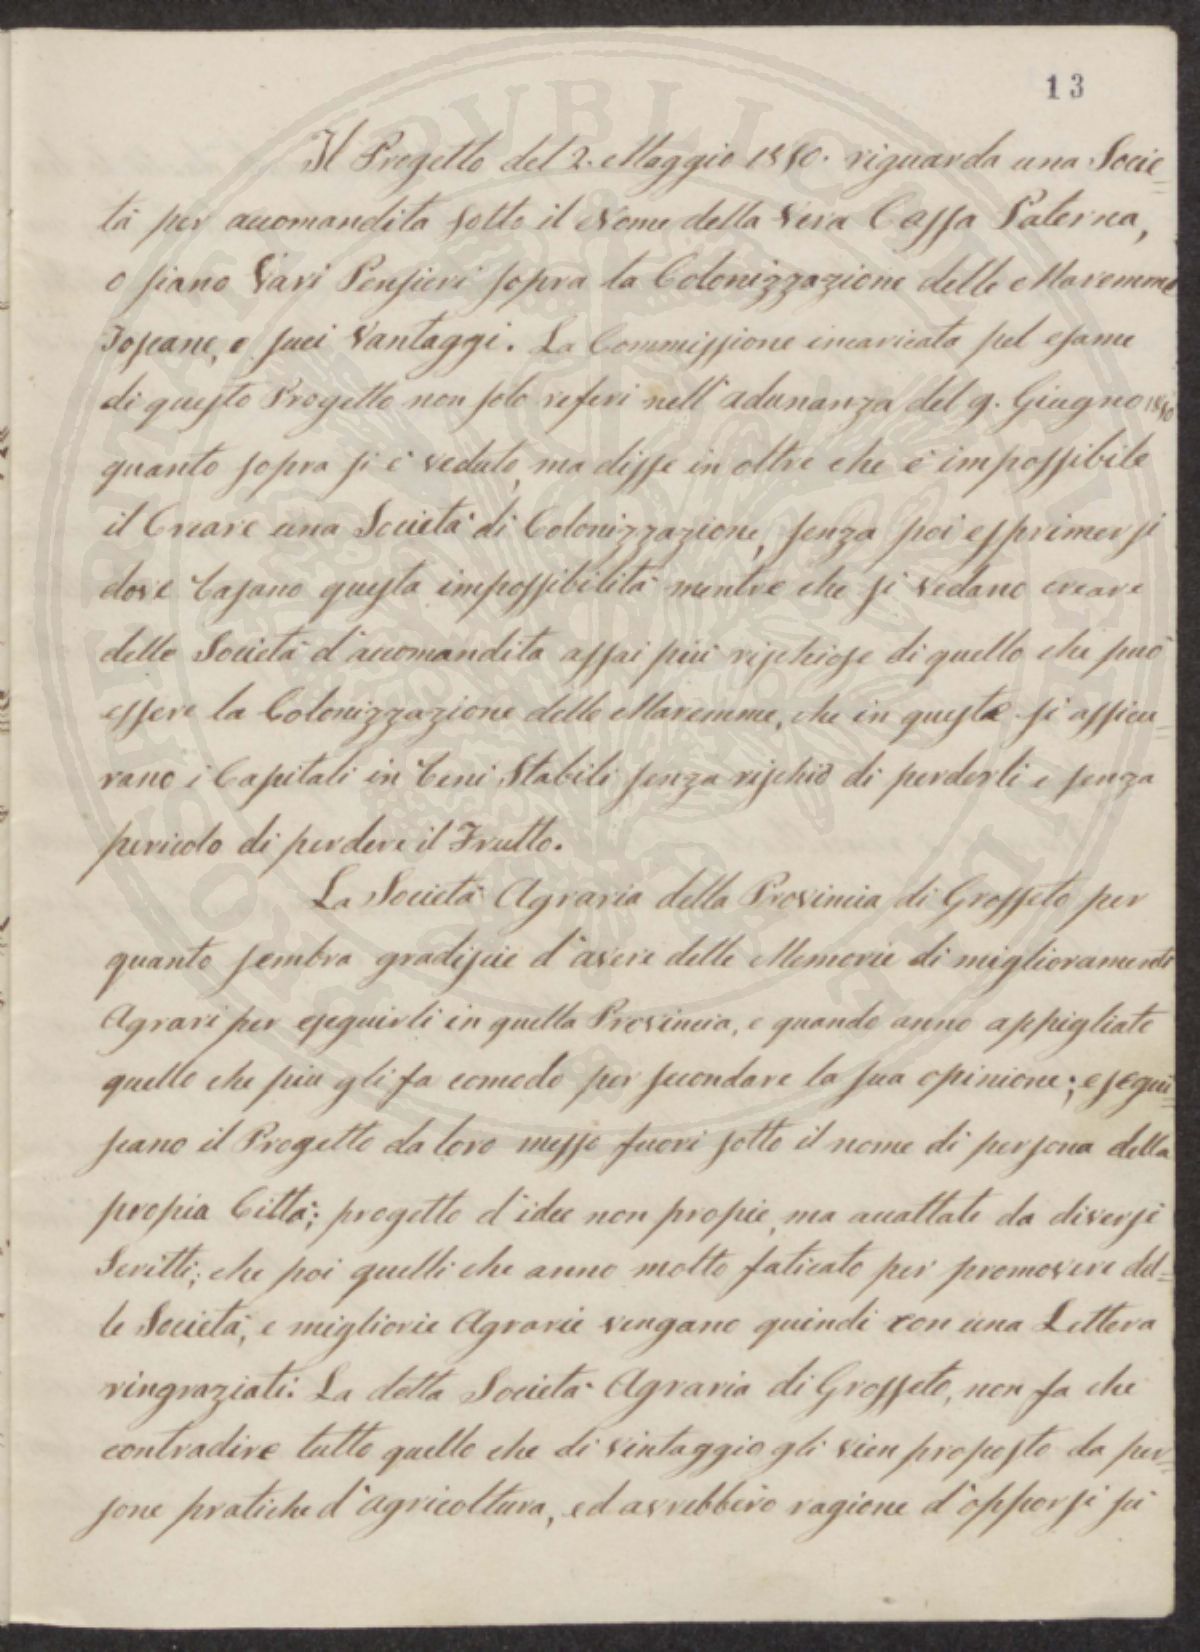 13
Il Progetto del 2. Maggio 1850. riguarda una Socie=
tà per accomandita sotto il Nome della Vera Cassa Paterna,
o siano Varj Pensieri sopra la Colonizzazione delle Maremme
Toscane, e suoi Vantaggi. La Commissione incaricata pel esame
di questo Progetto non solo referì nell'adunanza del 9. Giugno 1850
quanto sopra si è veduto, ma disse in oltre che è impossibile
il Creare una Società di Colonizzazione, senza poi esprimersi
dove basano questa impossibilità mentre che si vedano creare
delle Società d'accomandita assai più rischiose di quello che può
essere la Colonizzazione delle Maremme, che in queste si assicu=
rano i Capitali in beni Stabili senza rischio di perderli e senza
pericolo di perdere il Frutto.
La Società Agraria della Provincia di Grosseto per
quanto sembra gradiscie d'avere delle Memorie di miglioramenti
Agrari per eseguirli in quella Provincia, e quando anno appigliato
quello che più gli fa comodo per secondare la sua opinione; esegui=
scano il Progetto da loro messo fuori sotto il nome di persona della
propia Città; progetto d'idee non propie, ma accattate da diversi
Scritti; che poi quelli che anno molto faticato per promovere del=
le Società, e migliorie Agrarie vengano quindi con una Lettera
ringraziati: La detta Società Agraria di Grosseto, non fa che
contradire tutto quello che di vintaggio gli vien proposto da per=
sone pratiche d'agricoltura, ed avrebbero ragione d'opporsi se